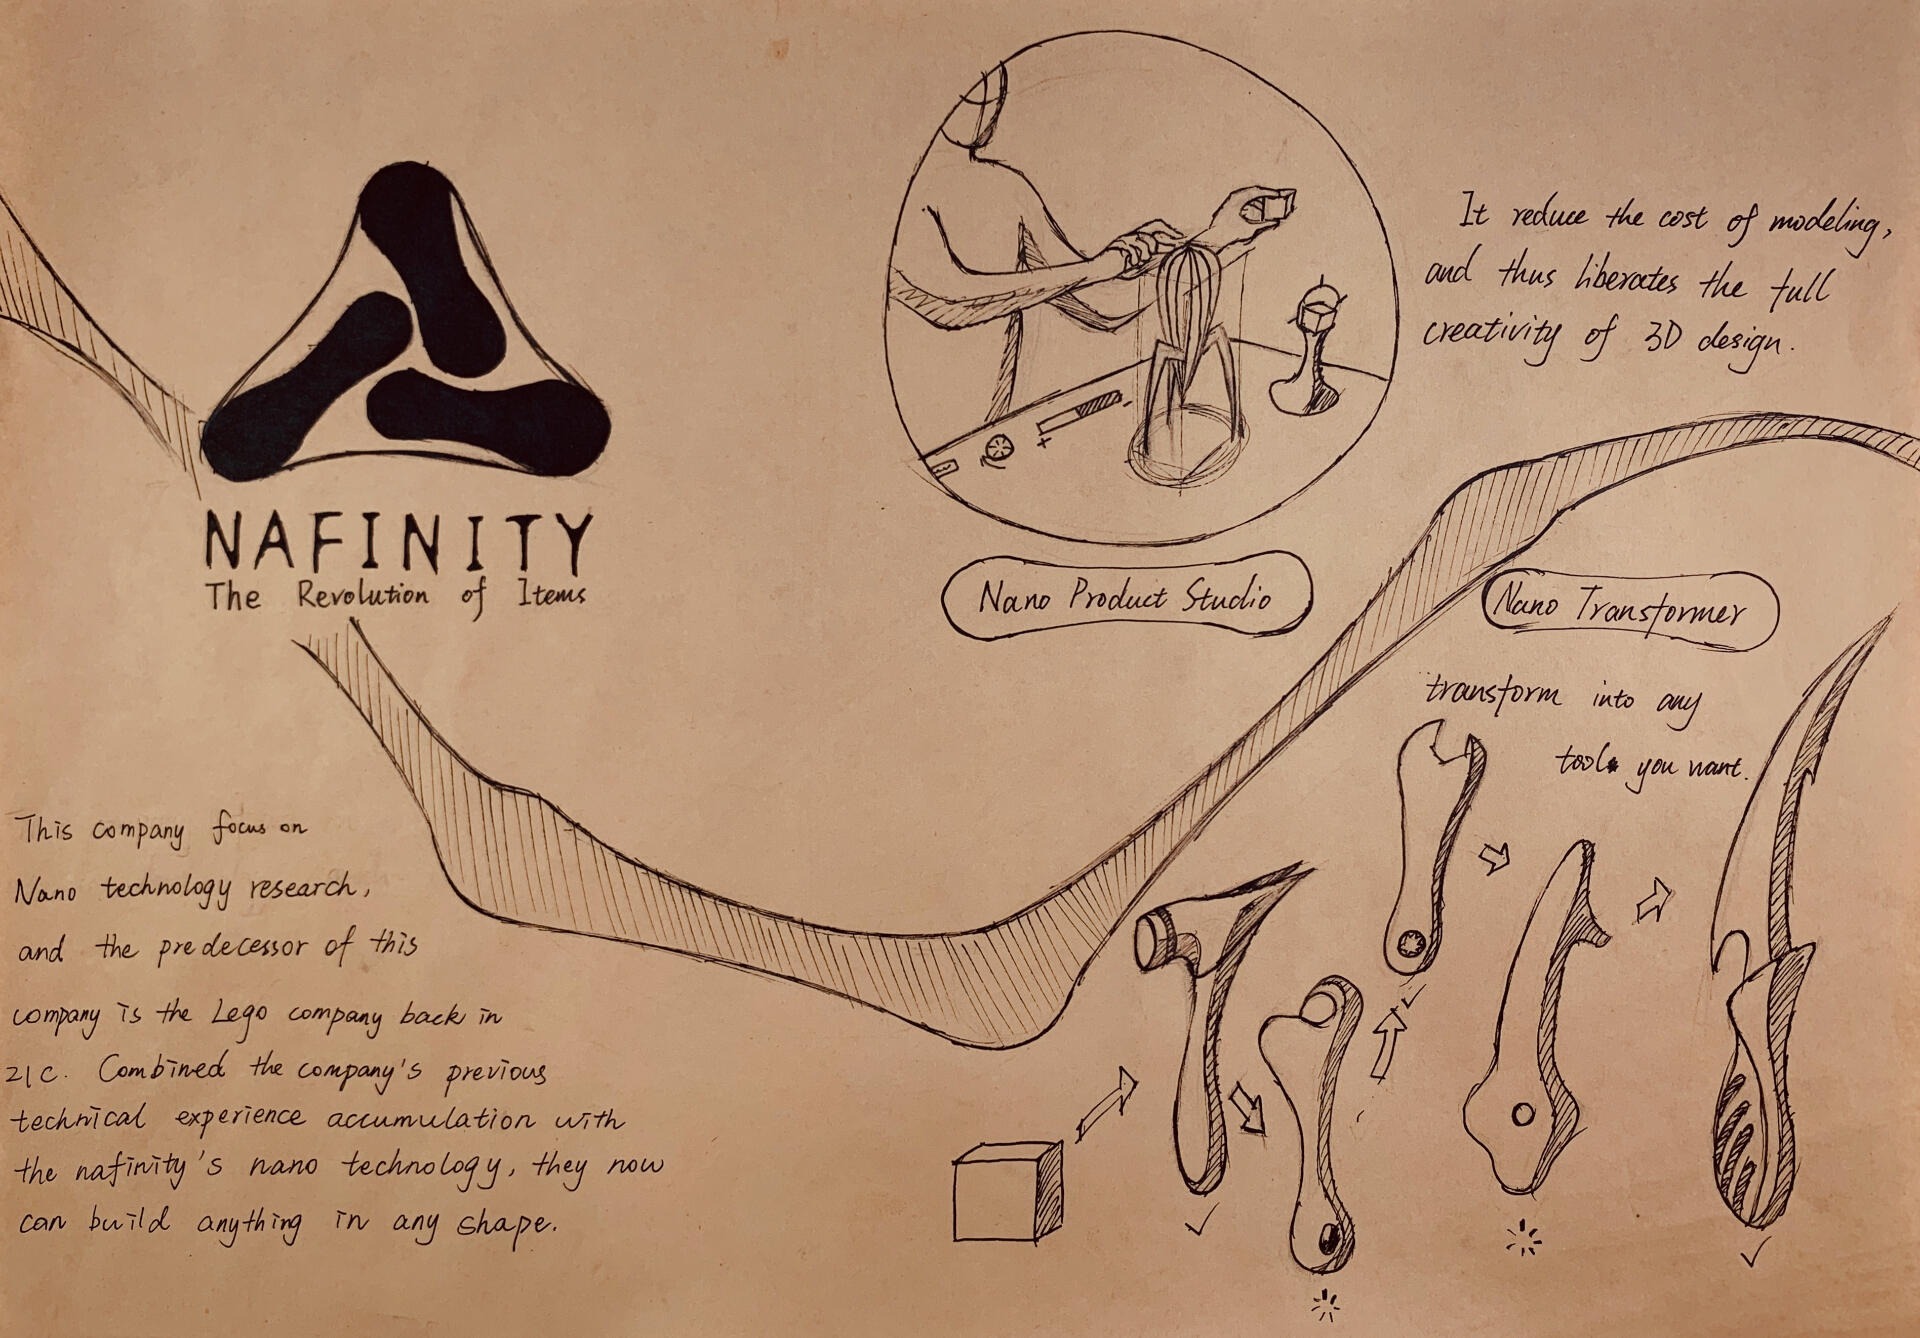 NAFINITY
The Revolution of Items
This company focus on
Nano technology research,
and the predecessor of this
company is the Lego company back in
21C. Combined the company's previous
technical experience accumulation with
the nafinity's nano technology, they now
can build anything in any shape.
Nano Product Studio
It reduce the cost of modeling,
and thus liberates the full
creativity of 3D design.
Nano Transformer
transform into any
tool you want.